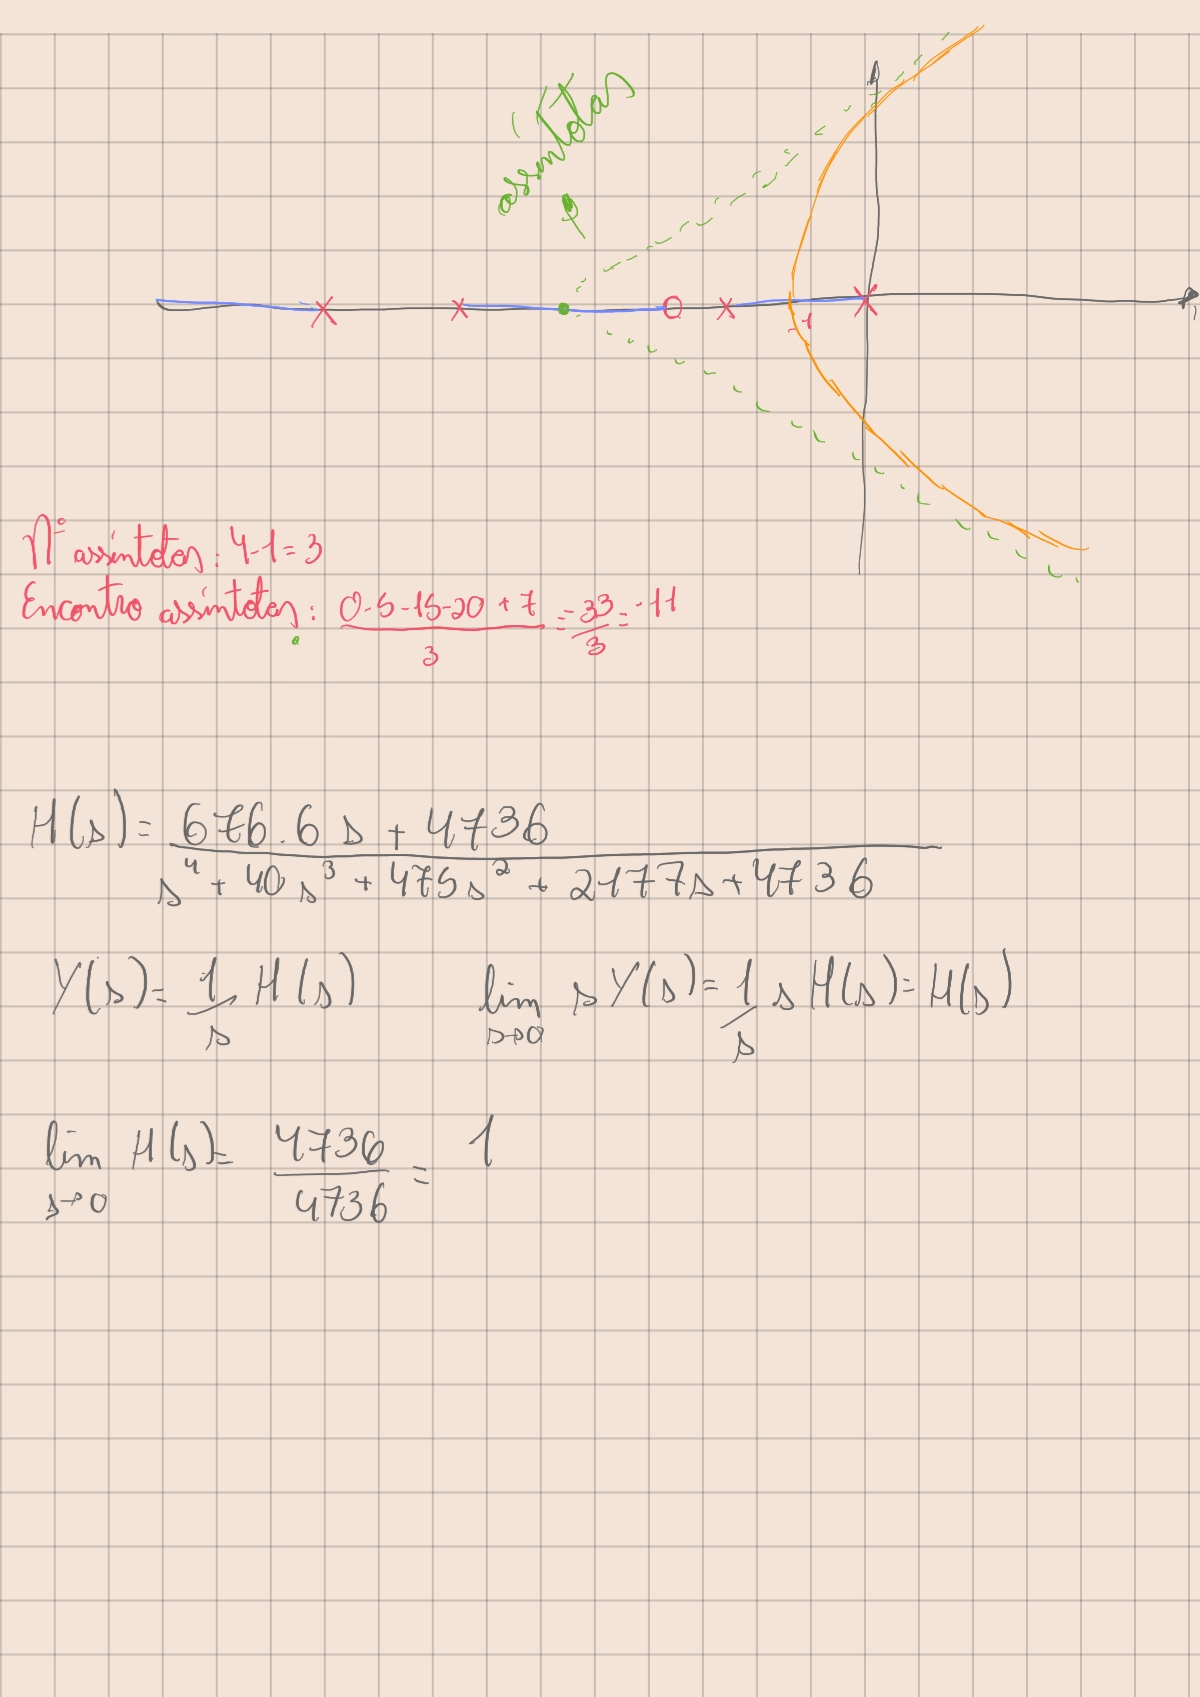 assíntotas
-1
Nº assíntotas: 4-1=3
Encontro assíntotas: (0-5-15-20+7)/3 = -33/3 = -11
H(s) = (676.6 s + 4736)/(s⁴ + 40 s³ + 475 s² + 2177 s + 4736)
Y(s) = 1/s H(s) lim s→0 s Y(s) = 1/s s H(s) = H(s)
lim s→0 H(s) = 4736/4736 = 1